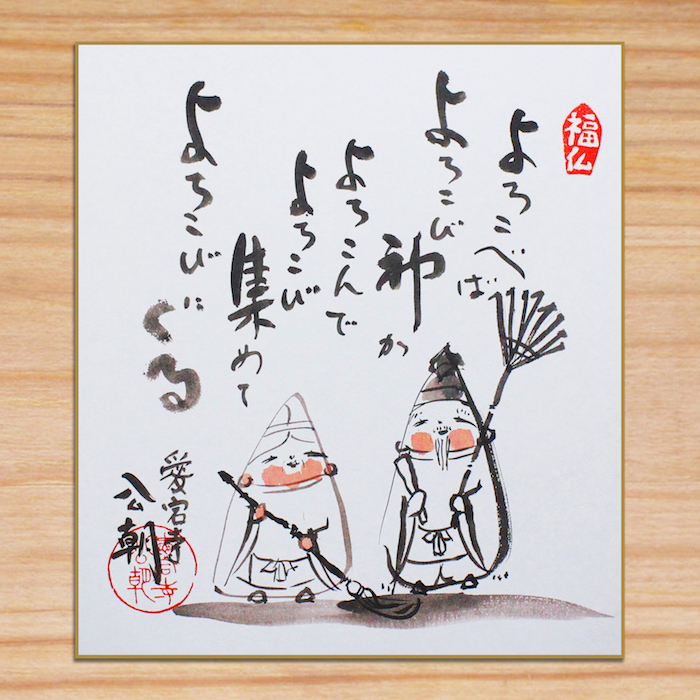 福仏
よろこべば
よろこび
神が
よろこんで
よろこび
集めて
よろこびに
くる
愛宕寺
公朝